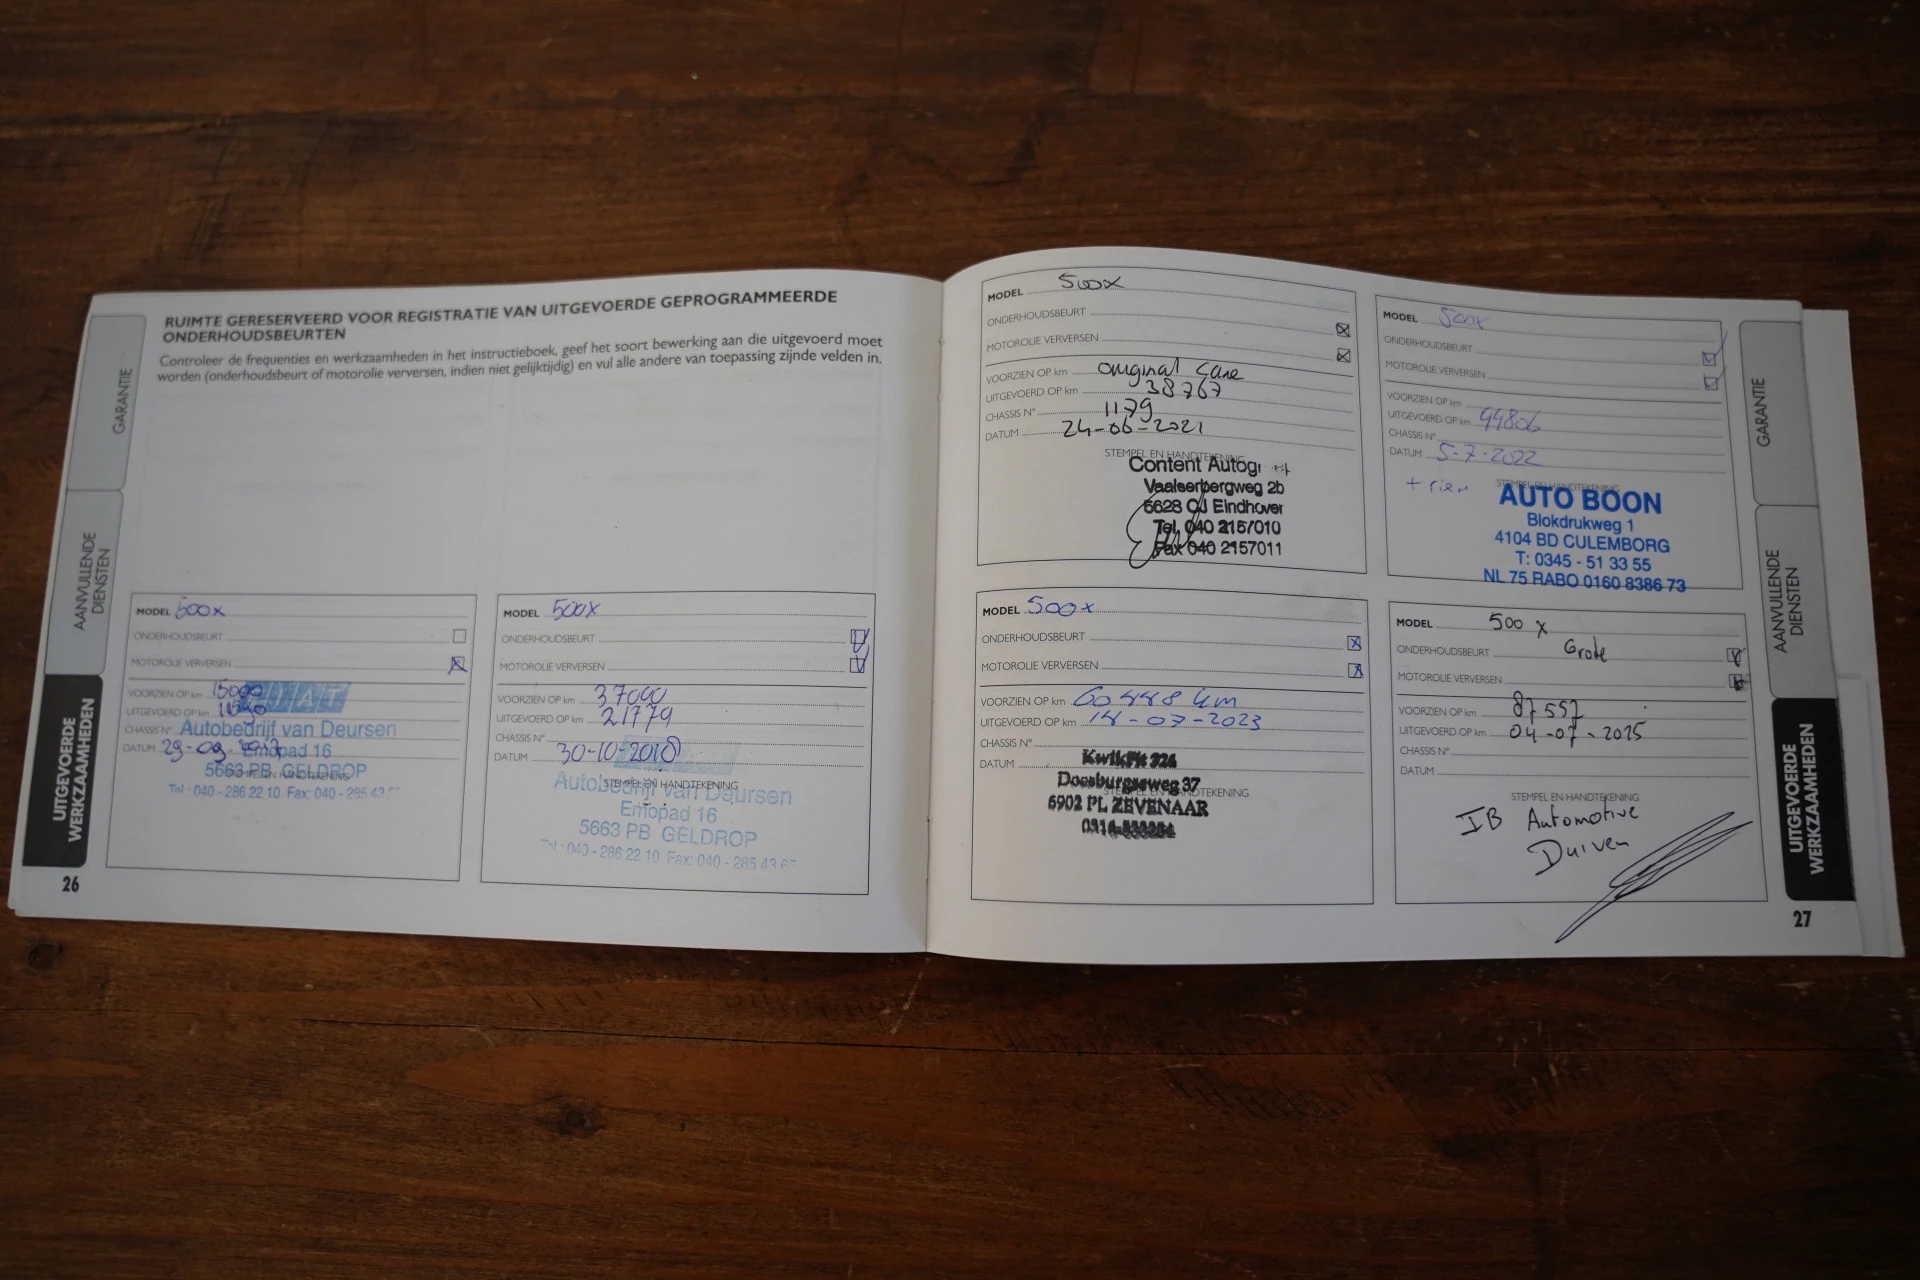 RUIMTE GERESERVEERD VOOR REGISTRATIE VAN UITGEVOERDE GEPROGRAMMEERDE
ONDERHOUDSBEURTEN
Controleer de frequenties en werkzaamheden in het instructieboek, geef het soort bewerking aan die uitgevoerd moet
worden (onderhoudsbeurt of motorolie verversen, indien niet gelijktijdig) en vul alle andere van toepassing zijnde velden in.
GARANTIE
AANVULLENDE
DIENSTEN
UITGEVOERDE
WERKZAAMHEDEN
26
MODEL 500x
ONDERHOUDSBEURT
MOTOROLIE VERVERSEN
VOORZIEN OP km 15000
UITGEVOERD OP km
CHASSIS N°
DATUM 29-09-2017
FIAT
Autobedrijf van Deursen
Emopad 16
5663 PB GELDROP
STEMPEL EN HANDTEKENING
Tel.: 040 - 286 22 10 Fax: 040 - 285 43
MODEL 500x
ONDERHOUDSBEURT
MOTOROLIE VERVERSEN
VOORZIEN OP km 37000
UITGEVOERD OP km 21779
CHASSIS N°
DATUM 30-10-2018
STEMPEL EN HANDTEKENING
Autobedrijf van Deursen
Emopad 16
5663 PB GELDROP
Tel.: 040 - 286 22 10 Fax: 040 - 285 43 65
MODEL 500x
ONDERHOUDSBEURT
MOTOROLIE VERVERSEN
VOORZIEN OP km original care
UITGEVOERD OP km 38767
CHASSIS N° 1179
DATUM 24-06-2021
STEMPEL EN HANDTEKENING
Content Autog
Vaalserbergweg 2b
5628 CJ Eindhoven
Tel. 040 2157010
Fax 040 2157011
MODEL 500x
ONDERHOUDSBEURT
MOTOROLIE VERVERSEN
VOORZIEN OP km
UITGEVOERD OP km 44806
CHASSIS N°
DATUM 5-7-2022
+ riem
STEMPEL EN HANDTEKENING
AUTO BOON
Blokdrukweg 1
4104 BD CULEMBORG
T: 0345 - 51 33 55
NL 75 RABO 0160 8386 73
MODEL 500x
ONDERHOUDSBEURT
MOTOROLIE VERVERSEN
VOORZIEN OP km 60448 km
UITGEVOERD OP km 14-07-2023
CHASSIS N°
DATUM
KwikFit 324
Doesburgseweg 37
STEMPEL EN HANDTEKENING
6902 PL ZEVENAAR
MODEL 500 x
ONDERHOUDSBEURT Grote
MOTOROLIE VERVERSEN
VOORZIEN OP km 87557
UITGEVOERD OP km 04-07-2025
CHASSIS N°
DATUM
STEMPEL EN HANDTEKENING
IB Automotive
Duiven
GARANTIE
AANVULLENDE
DIENSTEN
UITGEVOERDE
WERKZAAMHEDEN
27